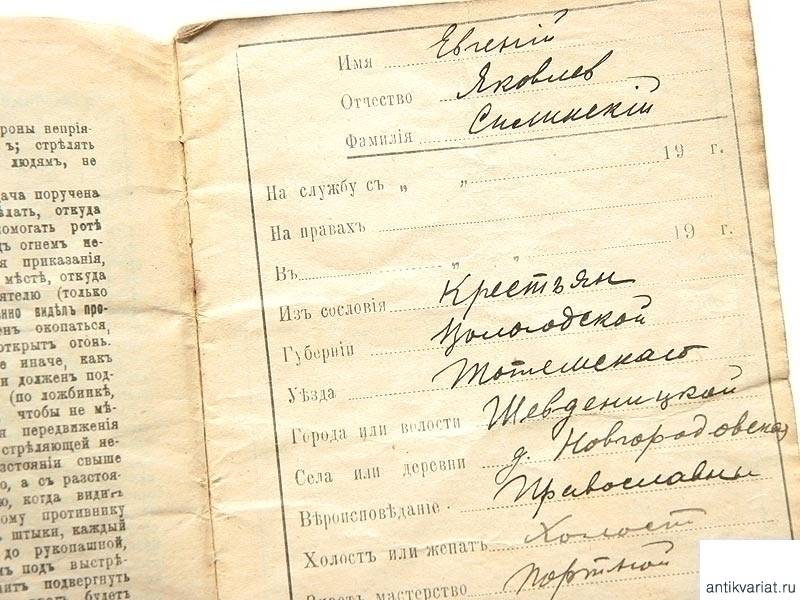 роны непрія-
ъ; стрѣлять
людямъ, не
ача поручена
ѣлать, откуда
омогать ротѣ
дъ огнем не-
я приказанія,
мѣстѣ, откуда
ятелю (только
нно видѣл про-
ен окопаться,
открыт огонь.
е иначе, как
и должен под-
(по ложбинкѣ,
чтобы не мѣ-
я передвиженія
стрѣляющей не-
зстояніи свыше
о, а съ разстоя-
ю, когда видит
ому противнику
штыки, каждый
до рукопашной,
м под выстрѣ-
ит подвергнуть
будеть
Имя Евгеній
Отчество Яковлев
Фамилія Силинскій
На службу съ „ „ 19 г.
На правахъ
Въ „ „ 19 г.
Изъ сословія Крестьян
Губерніи Вологодской
Уѣзда Тотемскаго
Города или волости Шевденицкой
Села или деревни д. Новгородовская
Вѣроисповѣданіе Православны
Холостъ или женатъ Холост
мастерство портной
antikvariat.ru